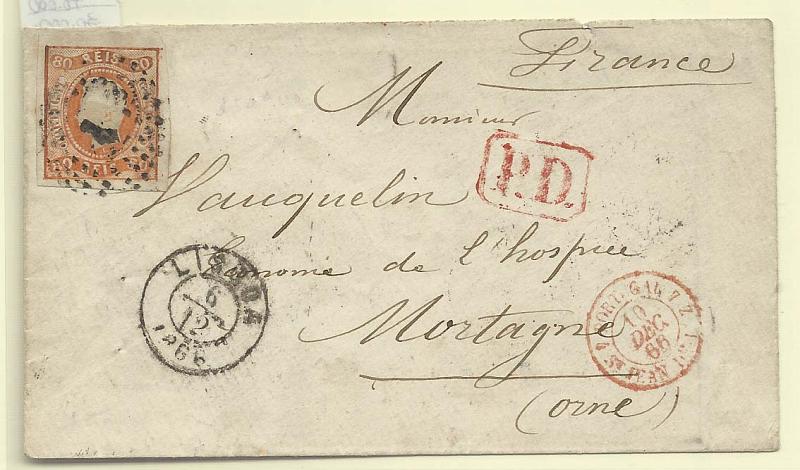 80 REIS 80
France
Monsieur
P.D.
Vauquelin
Econome de l'hospice
LISBOA
6
12
1866
Mortagne
PORTUGAL
10
DEC
66
ST JEAN
(orne)